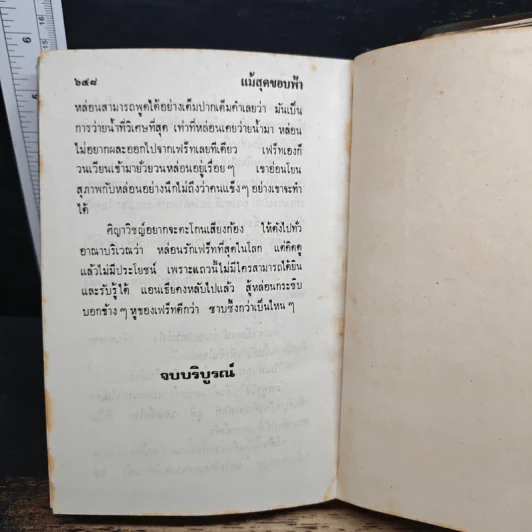 ๖๔๘ แม้สุดขอบฟ้า
หล่อนสามารถพูดได้อย่างเต็มปากเต็มคำเลยว่า มันเป็น
การว่ายน้ำที่วิเศษที่สุด เท่าที่หล่อนเคยว่ายน้ำมา หล่อน
ไม่อยากผละออกไปจากเฟร็ทเลยทีเดียว เฟร็ทเองก็
วนเวียนเข้ามายั่วยวนหล่อนอยู่เรื่อยๆ เขาอ่อนโยน
สุภาพกับหล่อนอย่างนึกไม่ถึงว่าคนแข็งๆ อย่างเขาจะทำ
ได้
ศิญาวิชญ์อยากจะตะโกนเสียงก้อง ให้ดังไปทั่ว
อาณาบริเวณว่า หล่อนรักเฟร็ทที่สุดในโลก แต่คิดดู
แล้วไม่มีประโยชน์ เพราะแถวนี้ไม่มีใครสามารถได้ยิน
และรับรู้ได้ แอนเธียคงหลับไปแล้ว สู้หล่อนกระซิบ
บอกข้างๆ หูของเฟร็ทดีกว่า ซาบซึ้งกว่าเป็นไหนๆ
จบบริบูรณ์
15
16
5
6